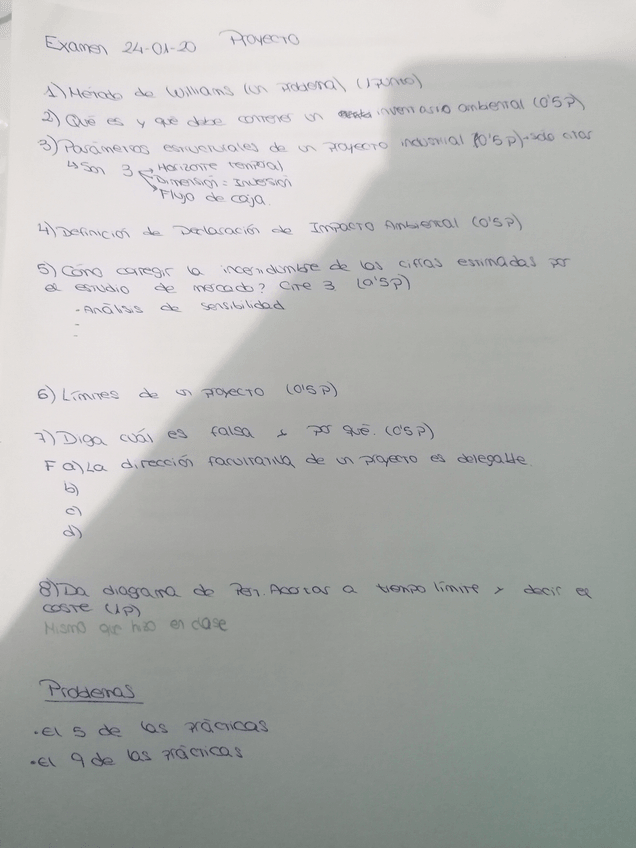 Examen 24-01-20 Proyecto
1) Método de Williams (un problema) (1 punto)
2) Qué es y qué debe contener un inventario ambiental (0'5 P)
3) Parámetros estructurales de un proyecto industrial (0'5 P) → sólo citar
↳ Son 3 → Horizonte temporal
→ Dimensión = Inversión
→ Flujo de caja.
4) Definición de Declaración de Impacto Ambiental (0'5 P)
5) Cómo corregir la incertidumbre de las cifras estimadas por
el estudio de mercado? Cite 3 (0'5 P)
- Análisis de sensibilidad
-
-
6) Límites de un proyecto (0'5 P)
7) Diga cuál es falsa y por qué. (0'5 P)
F a) La dirección facultativa de un proyecto es delegable.
b)
c)
d)
8) Da diagrama de Pert. Acortar a tiempo límite y decir el
coste (1 P)
Mismo que hizo en clase
Problemas
• El 5 de las prácticas
• El 9 de las prácticas